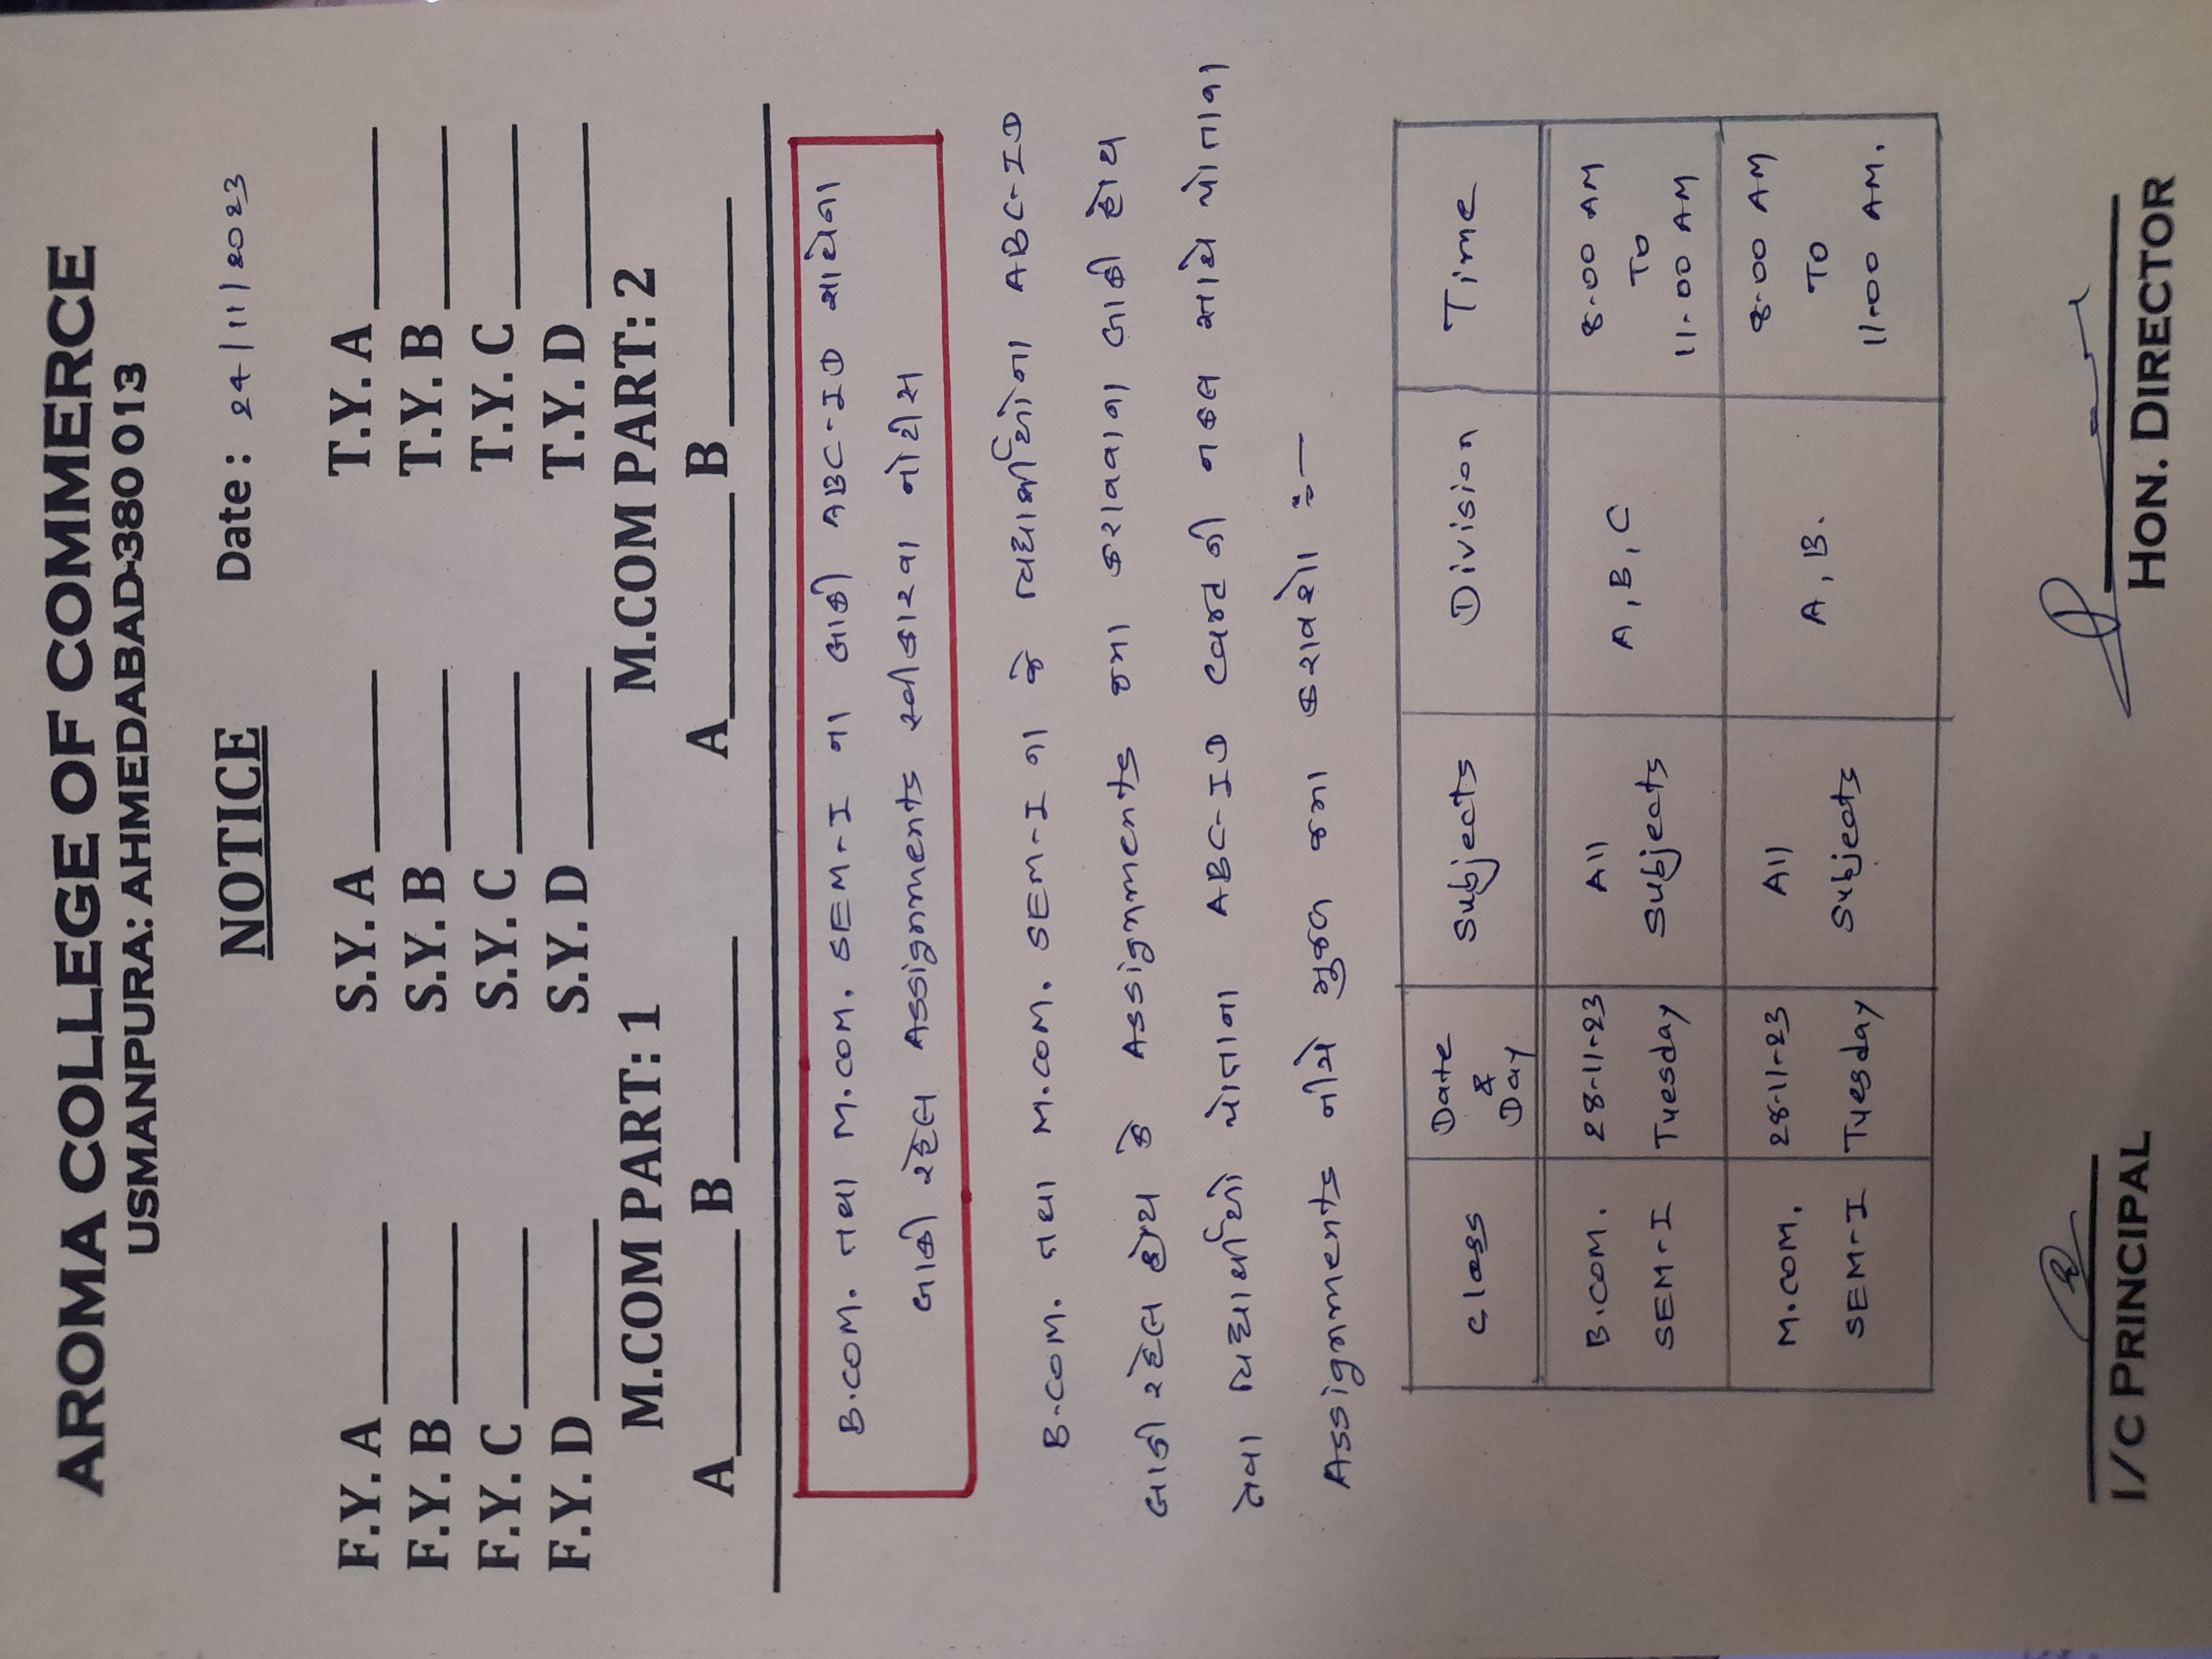 AROMA COLLEGE OF COMMERCE
USMANPURA: AHMEDABAD-380 013
NOTICE Date: 24/11/2023
F.Y. A ______ S.Y. A ______ T.Y. A ______
F.Y. B ______ S.Y. B ______ T.Y. B ______
F.Y. C ______ S.Y. C ______ T.Y. C ______
F.Y. D ______ S.Y. D ______ T.Y. D ______
M.COM PART: 1 M.COM PART: 2
A ______ B ______ A ______ B ______
B.COM. તથા M.COM. SEM-I ના બાકી ABC-ID સાથેના
બાકી રહેલ Assignments સ્વીકારવા નોટીસ
B.COM. તથા M.COM. SEM-I ના જે વિદ્યાર્થીઓના ABC-ID
બાકી રહેલ હોય કે Assignments જમા કરાવવાના બાકી હોય
તેવા વિદ્યાર્થીઓ પોતાના ABC-ID Card ની નકલ સાથે પોતાના
Assignments નીચે મુજબ જમા કરાવશે :-
Class Date & Day Subjects Division Time
B.COM. SEM-I 28-11-23 Tuesday All Subjects A, B, C 8-00 AM To 11-00 AM
M.COM. SEM-I 28-11-23 Tuesday All Subjects A, B. 8-00 AM To 11-00 AM.
I/C PRINCIPAL HON. DIRECTOR